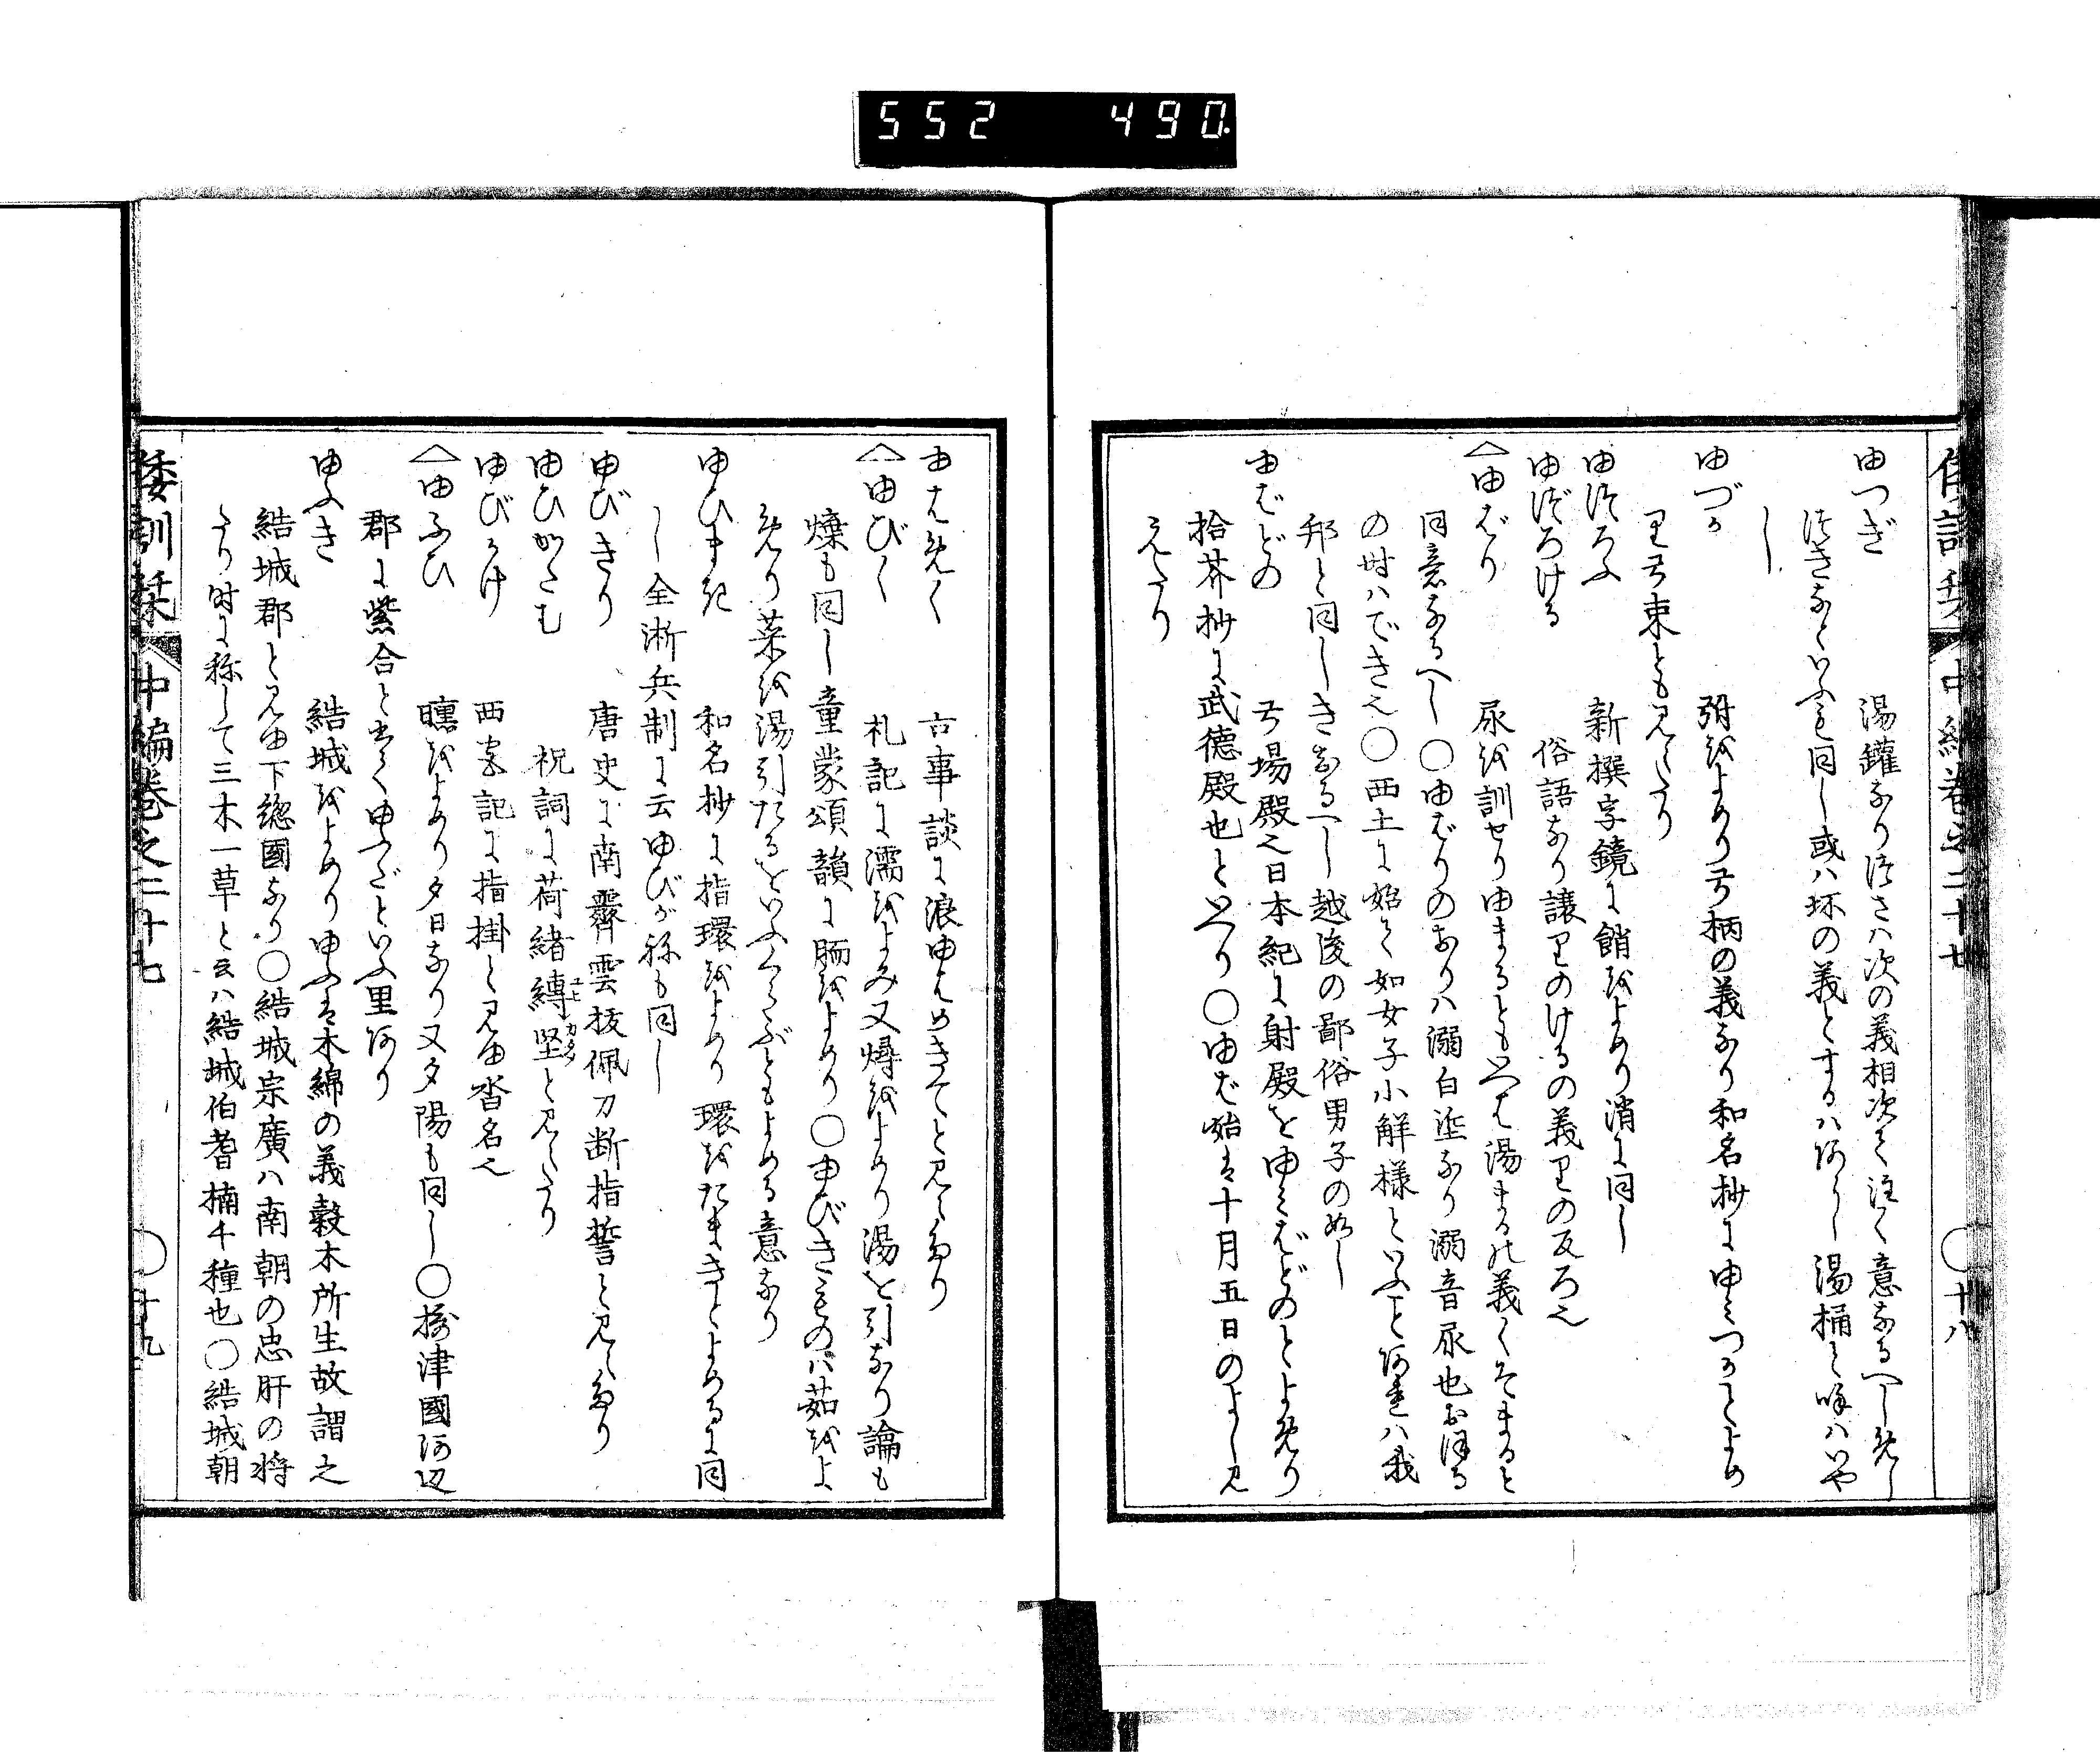 552 490
倭訓栞 中編卷之二十七 ○十八
ゆつぎ 湯鑵なり つぎハ次の義相次て注く意なるへしめし
つきなといふも同し或ハ坏の義とするハあらし湯桶と呼ハいや
し
ゆづか 弣をよめり弓柄の義なり和名抄にゆみつかとよめ
り弓束とも見えたり
ゆつろふ 新撰字鏡に艄をよめり消に同し
ゆづろける 俗語なり譲りのける の義りの反ろ也
へゆばり 尿を訓せりゆまるともいへは湯まるの義くそまると
同意なるへし○ゆばりのありハ溺白垽なり溺音尿也おほる
の時ハでき也○西土に始て如女子小解様といふことあれハ我
邦と同しきなるへし越後の鄙俗男子の如し
ゆばどの 弓場殿也日本紀に射殿をゆみばどのとよめり
拾芥抄に武徳殿也といへり○ゆば始は十月五日のよし見
えたり
ゆはめく 古事談に浪ゆはめきてと見えたり
へゆびく 礼記に濡をよみ又燖をよめり湯を引なり論も
燦も同し童蒙頌韻に胹をよめり○ゆびきものハ茹をよ
めり菜を湯引たるをいふくくぶともよめる意なり
ゆひまき 和名抄に指環をよめり環をたまきとよめるに同
し全淅兵制に云ゆびがねも同し
ゆびきり 唐史に南霽雲抜佩刀断指誓と見えたり
ゆひかたむ 祝詞に荷緒縛ユヒ堅カタメと見えたり
ゆびかけ 西宮記に指掛と見ゆ沓名也
へゆふひ 曛をよめり夕日なり又夕陽も同し○摂津國河辺
郡に紫合と書てゆふだといふ里あり
ゆふき 結城をよめりゆふは木綿の義穀木所生故謂之
結城郡と見ゆ下総國なり○結城宗廣ハ南朝の忠肝の将
たり時に称して三木一草と云ハ結城伯耆楠千種也○結城朝
倭訓栞 中編卷之二十七 ○十九